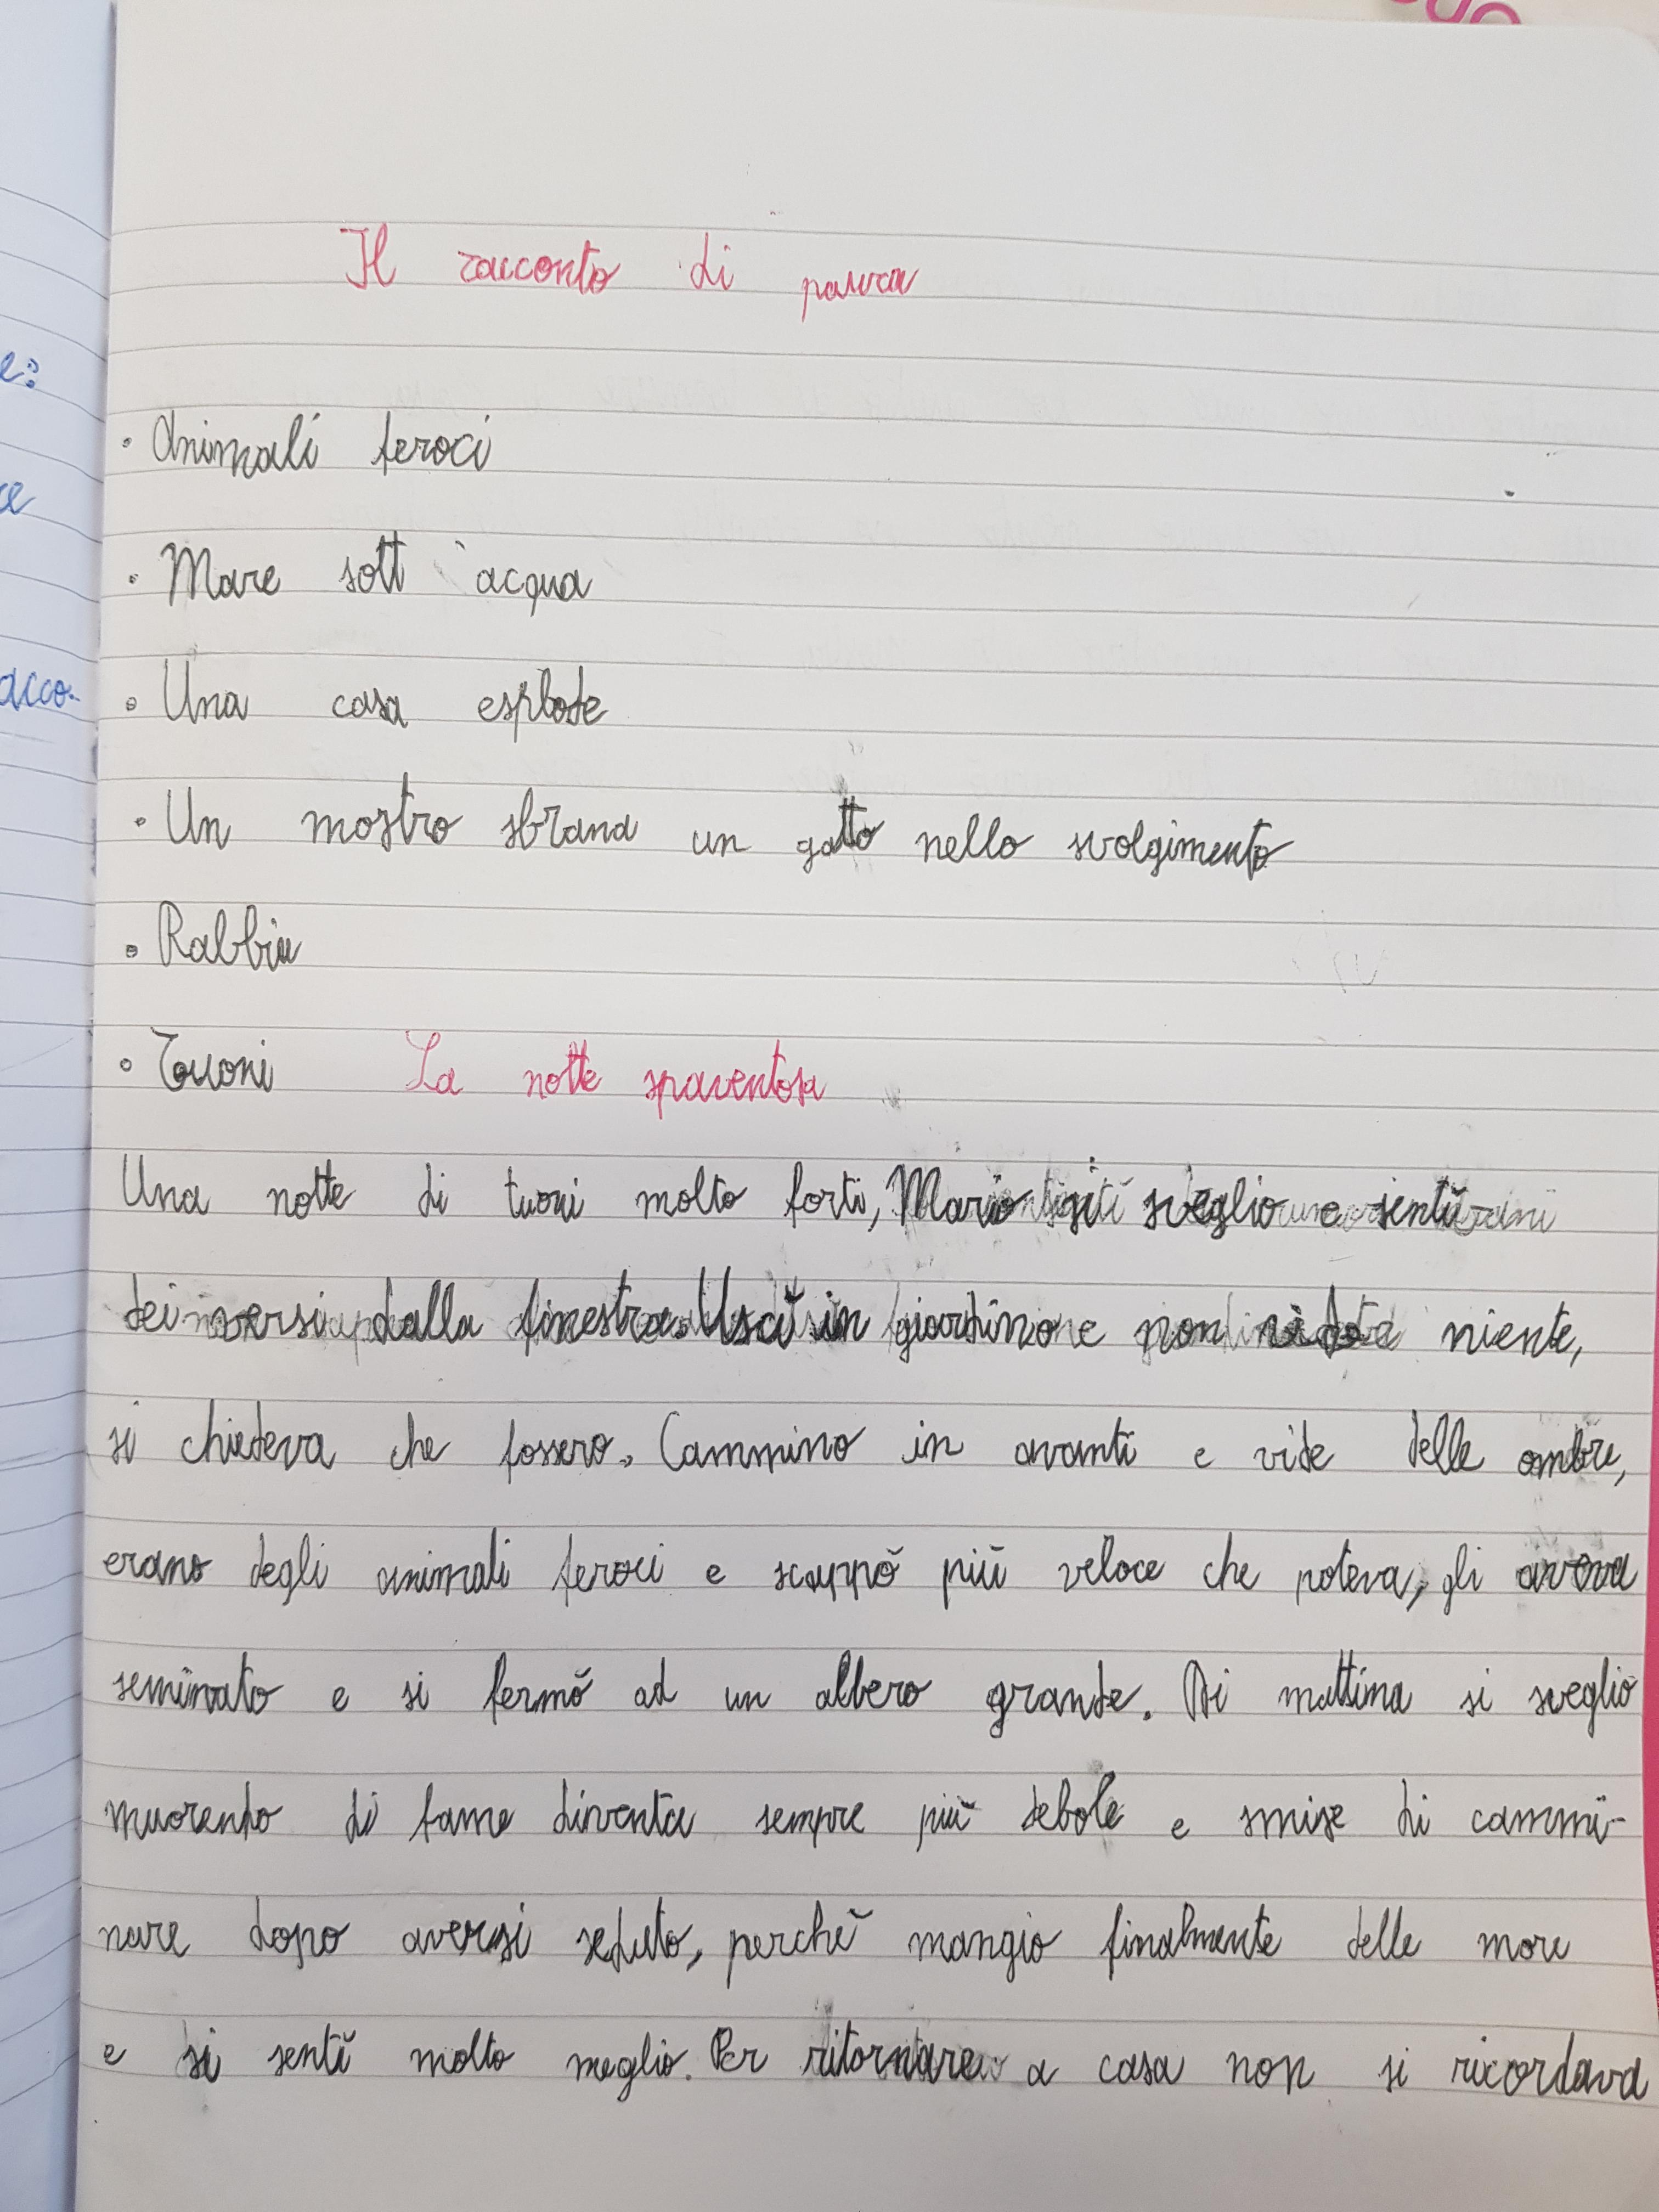 Il racconto di paura
e:
• Animali feroci
• Mare sott'acqua
acco.
• Una casa esplode
• Un mostro sbrana un gatto nello svolgimento
• Rabbia
• Tuoni La notte spaventosa
Una notte di tuoni molto forti, Mario si sveglio e sentì
dei versi dalla finestra. Uscì in giardino e non vide niente,
si chiedeva che fossero. Cammino in avanti e vide delle ombre,
erano degli animali feroci e scappò più veloce che poteva, gli aveva
seminato e si fermò ad un albero grande. Di mattina si sveglio
muorendo di fame diventa sempre più debole e smise di cammi-
nare dopo aversi seduto, perchè mangio finalmente delle more
e si sentì molto meglio. Per ritornare a casa non si ricordava